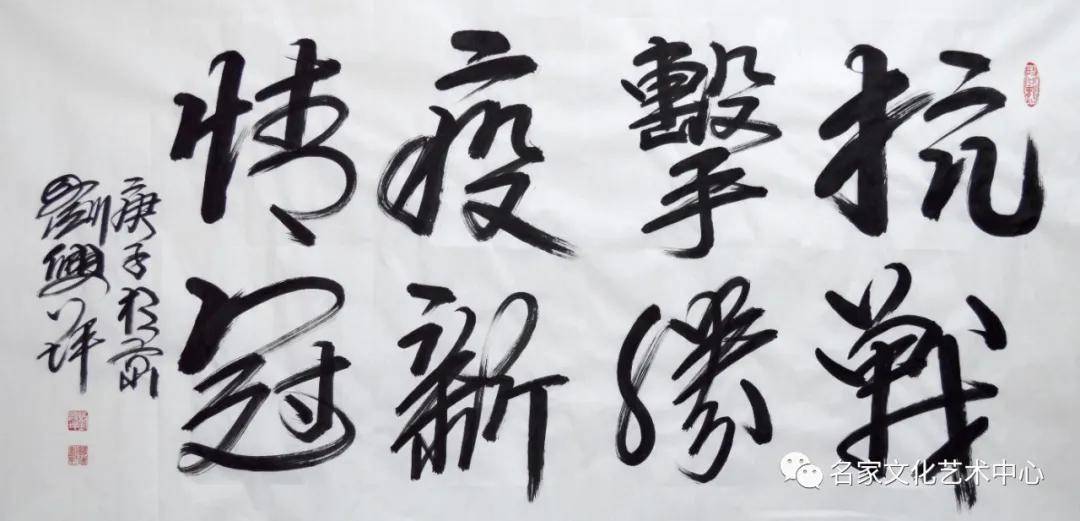 抗擊疫情
戰勝新冠
庚子於
劉興
名家文化艺术中心